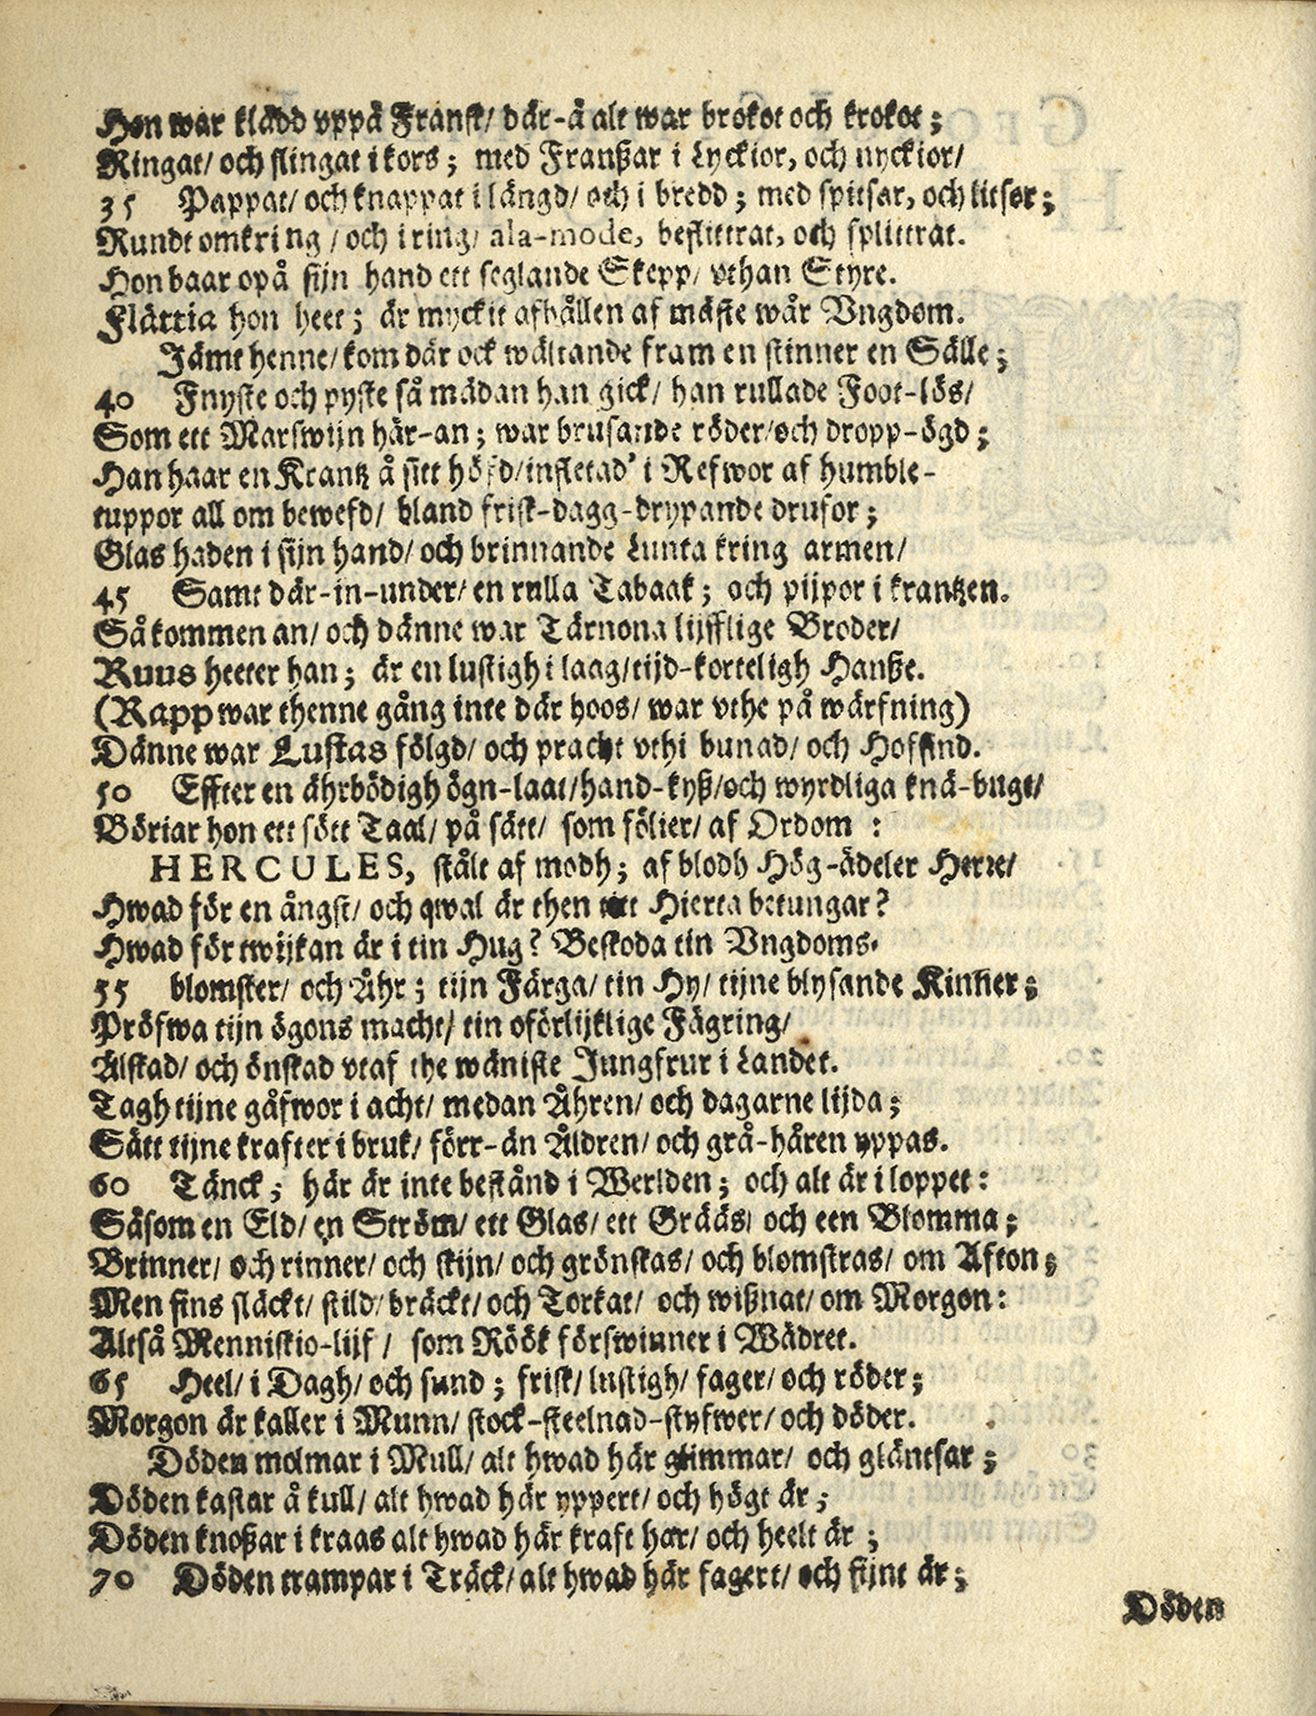 Hon war klädd vppå Fransk/ där-å alt war brokot och krokot;
Ringat/ och slingat i kors; med Franßar i Lyckior, och nyckior/
35 Pappat/ och knappat i längd/ och i bredd; med spitsar, och litser;
Rundt omkring / och i ring/ ala-mode, beslittrat, och splittrat.
Hon baar opå sijn hand ett seglande Skepp/ vthan Styre.
Flättia hon heet; är myckit afhållen af mäste wår Vngdom.
Jämt henne/ kom där ock wältande fram en stinner en Sälle;
40 Fnyste och pyste så mädan han gick/ han rullade Foot-lös/
Som ett Marswijn här-an; war brusande röder/ och dropp-ögd;
Han haar en Krantz å sitt höfd/ infletad' i Refwor af humble-
tuppor all om bewefd/ bland frisk-dagg-drypande drufor;
Glas haden i sijn hand/ och brinnande Lunta kring armen/
45 Samt där-in-under/ en rulla Tabaak; och pijpor i krantzen.
Så kommen an/ och dänne war Tärnona lijfflige Broder/
Ruus heeter han; är en lustigh i laag/ tijd-korteligh Hanße.
(Rapp war thenne gång inte där hoos/ war vthe på wärfning)
Dänne war Lustas fölgd/ och pracht vthi bunad/ och Hoffind.
50 Effter en ährbödigh ögn-laat/ hand-kyß/ och wyrdliga knä-bugt/
Böriar hon ett sött Taal/ på sätt/ som fölier/ af Ordom :
HERCULES, stålt af modh; af blodh Hög-ädeler Herre/
Hwad för en ångst/ och qwal är then titt Hierta betungar?
Hwad för twijkan är i tin Hug? Beskoda tin Vngdoms-
55 blomster/ och Åhr; tijn Färga/ tin Hy/ tijne blysande Kinner;
Pröfwa tijn ögons macht/ tin oförlijklige Fägring/
Älskad/ och önskad vtaf the wäniste Jungfrur i Landet.
Tagh tijne gåfwor i acht/ medan Åhren/ och dagarne lijda;
Sätt tijne krafter i bruk/ förr-än Åldren/ och grå-håren yppas.
60 Tänck; här är inte bestånd i Werlden; och alt är i loppet:
Såsom en Eld/ en Ström/ ett Glas/ ett Grääs/ och een Blomma;
Brinner/ och rinner/ och skijn/ och grönskas/ och blomstras/ om Afton;
Men fins släckt/ stild/ bräckt/ och Torkat/ och wißnat/ om Morgon:
Altså Menniskio-lijf / som Röök förswinner i Wädret.
65 Heel/ i Dagh/ och sund; frisk/ lustigh/ fager/ och röder;
Morgon är kaller i Munn/ stock-steelnad-styfwer/ och döder.
Döden molmar i Mull/ alt hwad här glimmar/ och gläntsar;
Döden kastar å kull/ alt hwad här yppert/ och högt är;
Döden knoßar i kraas alt hwad här kraft har/ och heelt är ;
70 Döden trampar i Träck/ alt hwad här fagert/ och fijnt är;
Döden